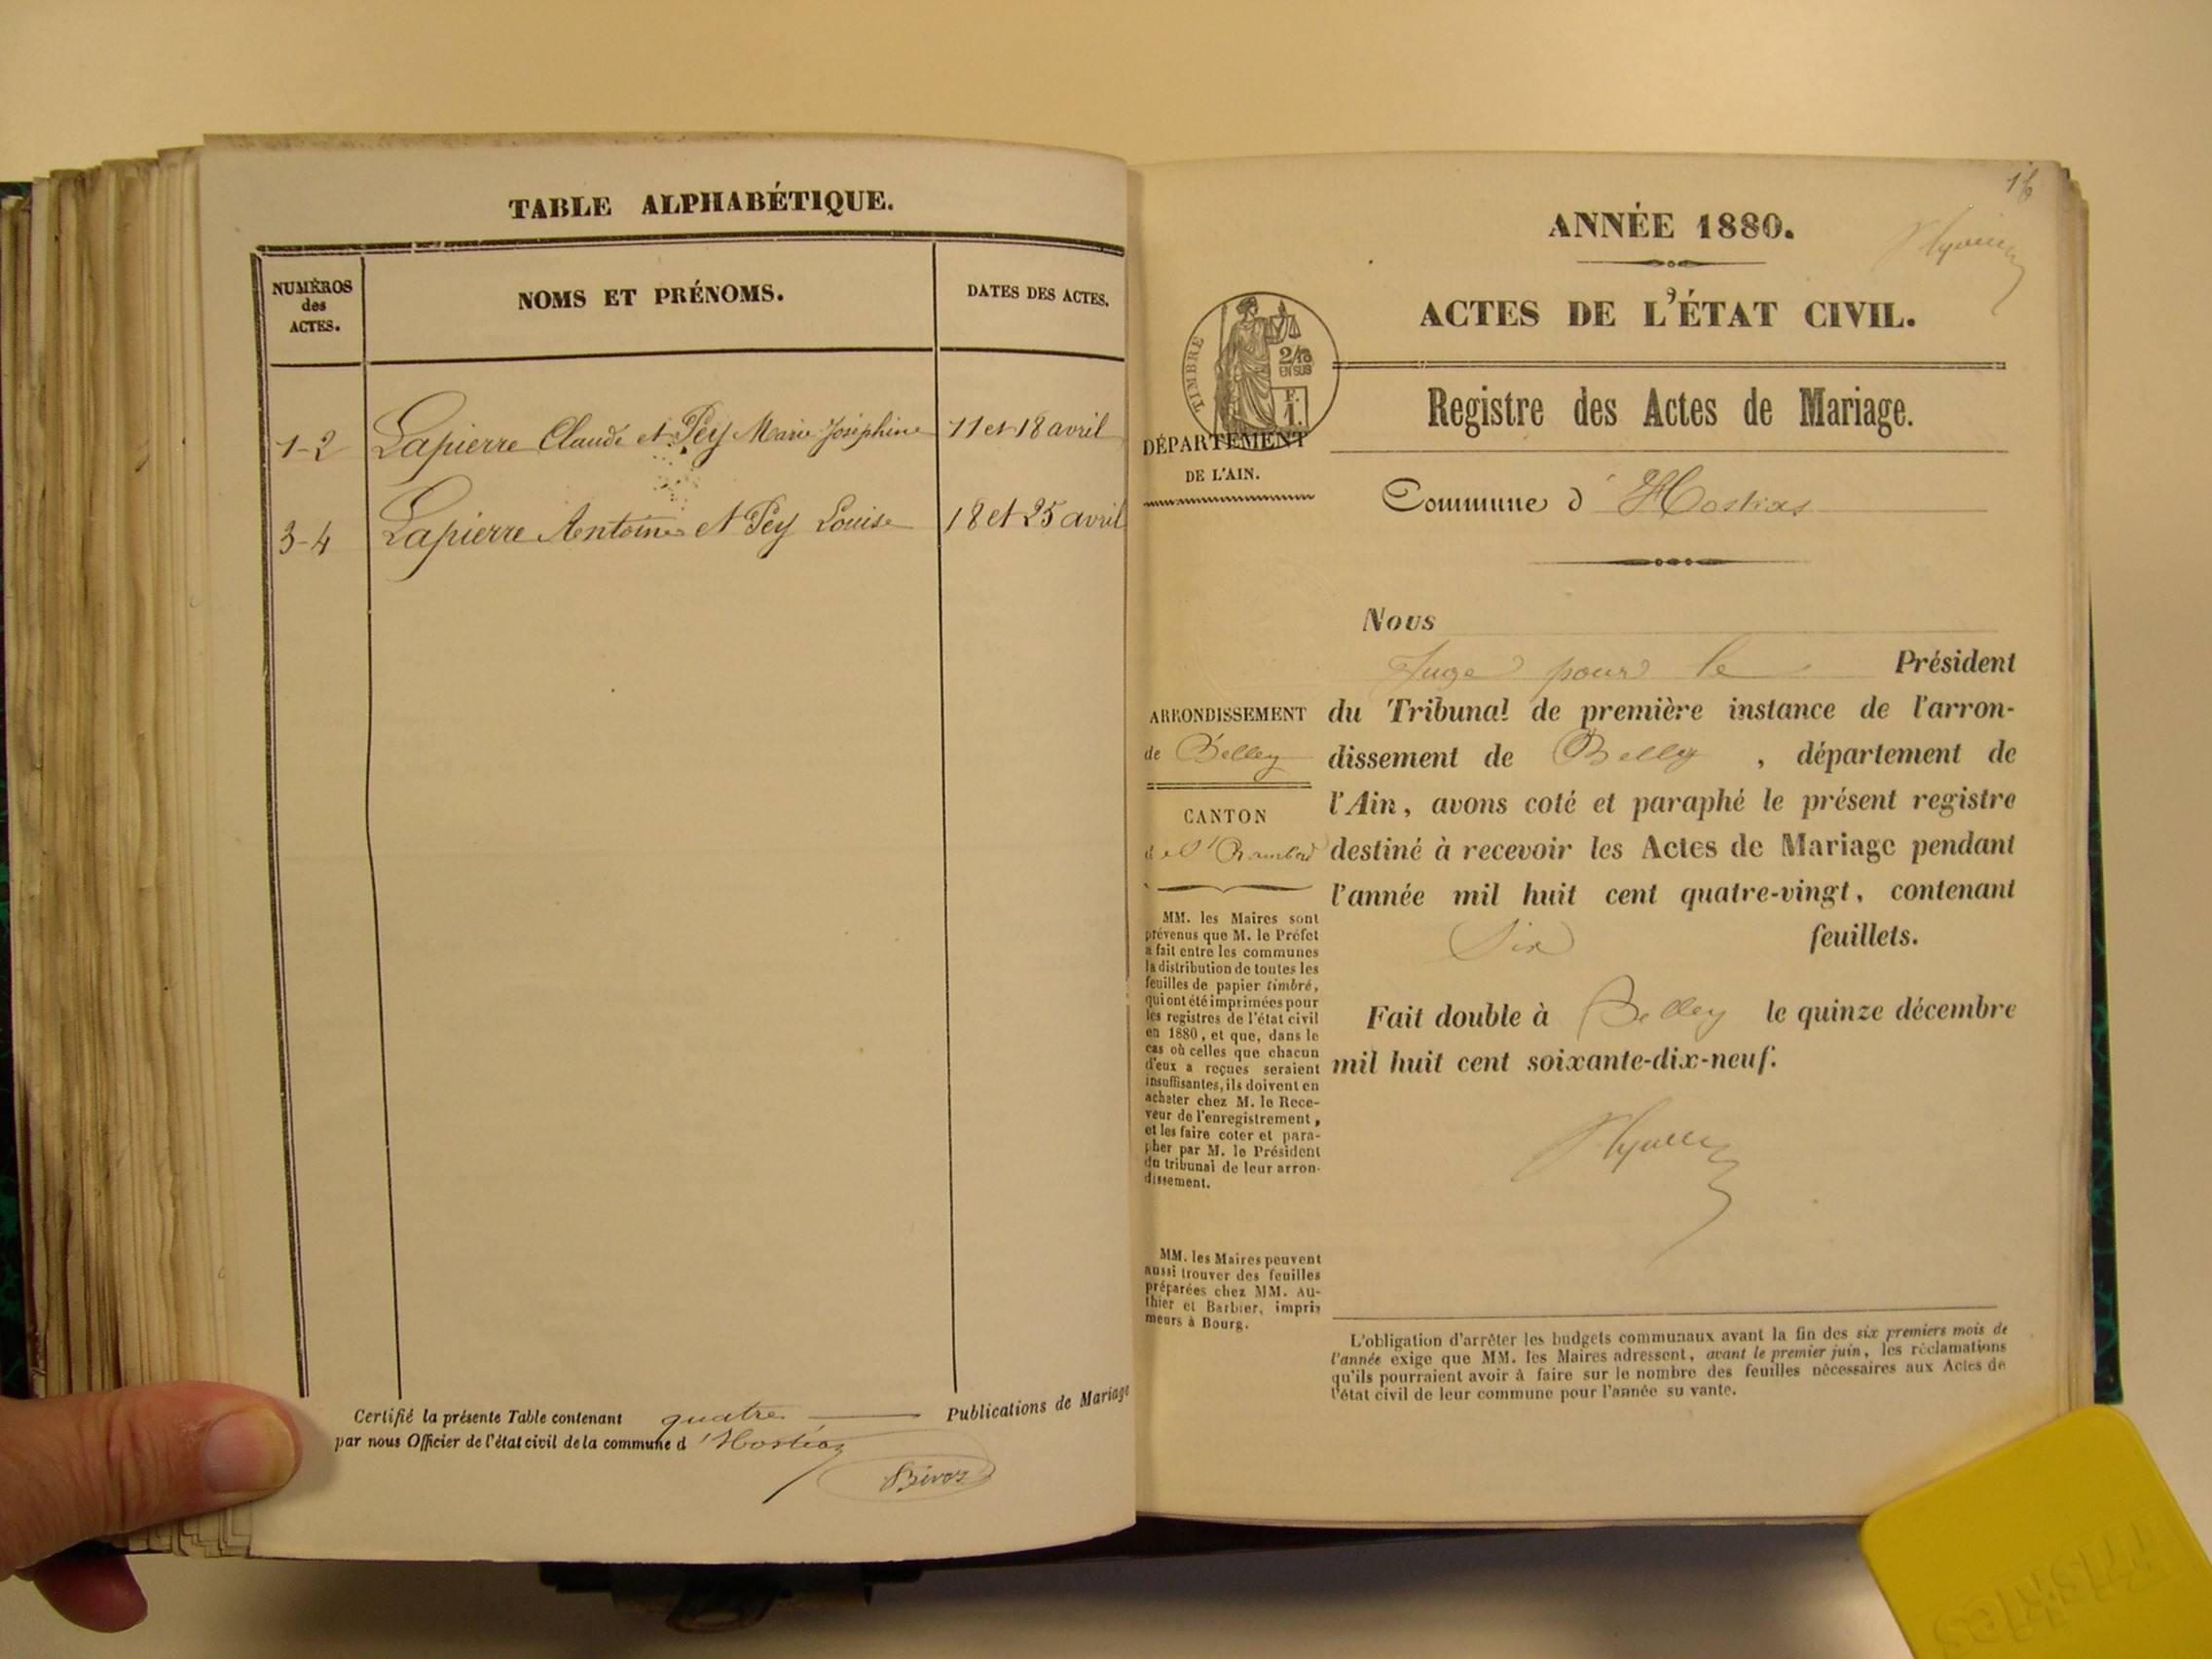 TABLE ALPHABÉTIQUE.
NUMÉROS
des
ACTES.
NOMS ET PRÉNOMS.
DATES DES ACTES.
1-2 Lapierre Claude et Pey Marie Joséphine 11 et 18 avril
3-4 Lapierre Antoine et Pey Louise 18 et 25 avril
Certifié la présente Table contenant quatre Publications de Mariage
par nous Officier de l'état civil de la commune d'Hostiaz
16
ANNÉE 1880.
ACTES DE L'ÉTAT CIVIL.
TIMBRE
2/10
EN SUS
F.
1.
Registre des Actes de Mariage.
DÉPARTEMENT
DE L'AIN.
Commune d'Hostias
Nous
Juge pour le Président
ARRONDISSEMENT
de Belley
CANTON
de St Rambert
du Tribunal de première instance de l'arron-
dissement de Belley, département de
l'Ain, avons coté et paraphé le présent registre
destiné à recevoir les Actes de Mariage pendant
l'année mil huit cent quatre-vingt, contenant
Six feuillets.
Fait double à Belley le quinze décembre
mil huit cent soixante-dix-neuf.
MM. les Maires sont
prévenus que M. le Préfet
a fait entre les communes
la distribution de toutes les
feuilles de papier timbré,
qui ont été imprimées pour
les registres de l'état civil
en 1880, et que, dans le
cas où celles que chacun
d'eux a reçues seraient
insuffisantes, ils doivent en
acheter chez M. le Rece-
veur de l'enregistrement,
et les faire coter et para-
pher par M. le Président
du tribunal de leur arron-
dissement.
MM. les Maires peuvent
aussi trouver des feuilles
préparées chez MM. Au-
thier et Barbier, impri-
meurs à Bourg.
L'obligation d'arrêter les budgets communaux avant la fin des six premiers mois de
l'année exige que MM. les Maires adressent, avant le premier juin, les réclamations
qu'ils pourraient avoir à faire sur le nombre des feuilles nécessaires aux Actes de
l'état civil de leur commune pour l'année su vante.
Triskies